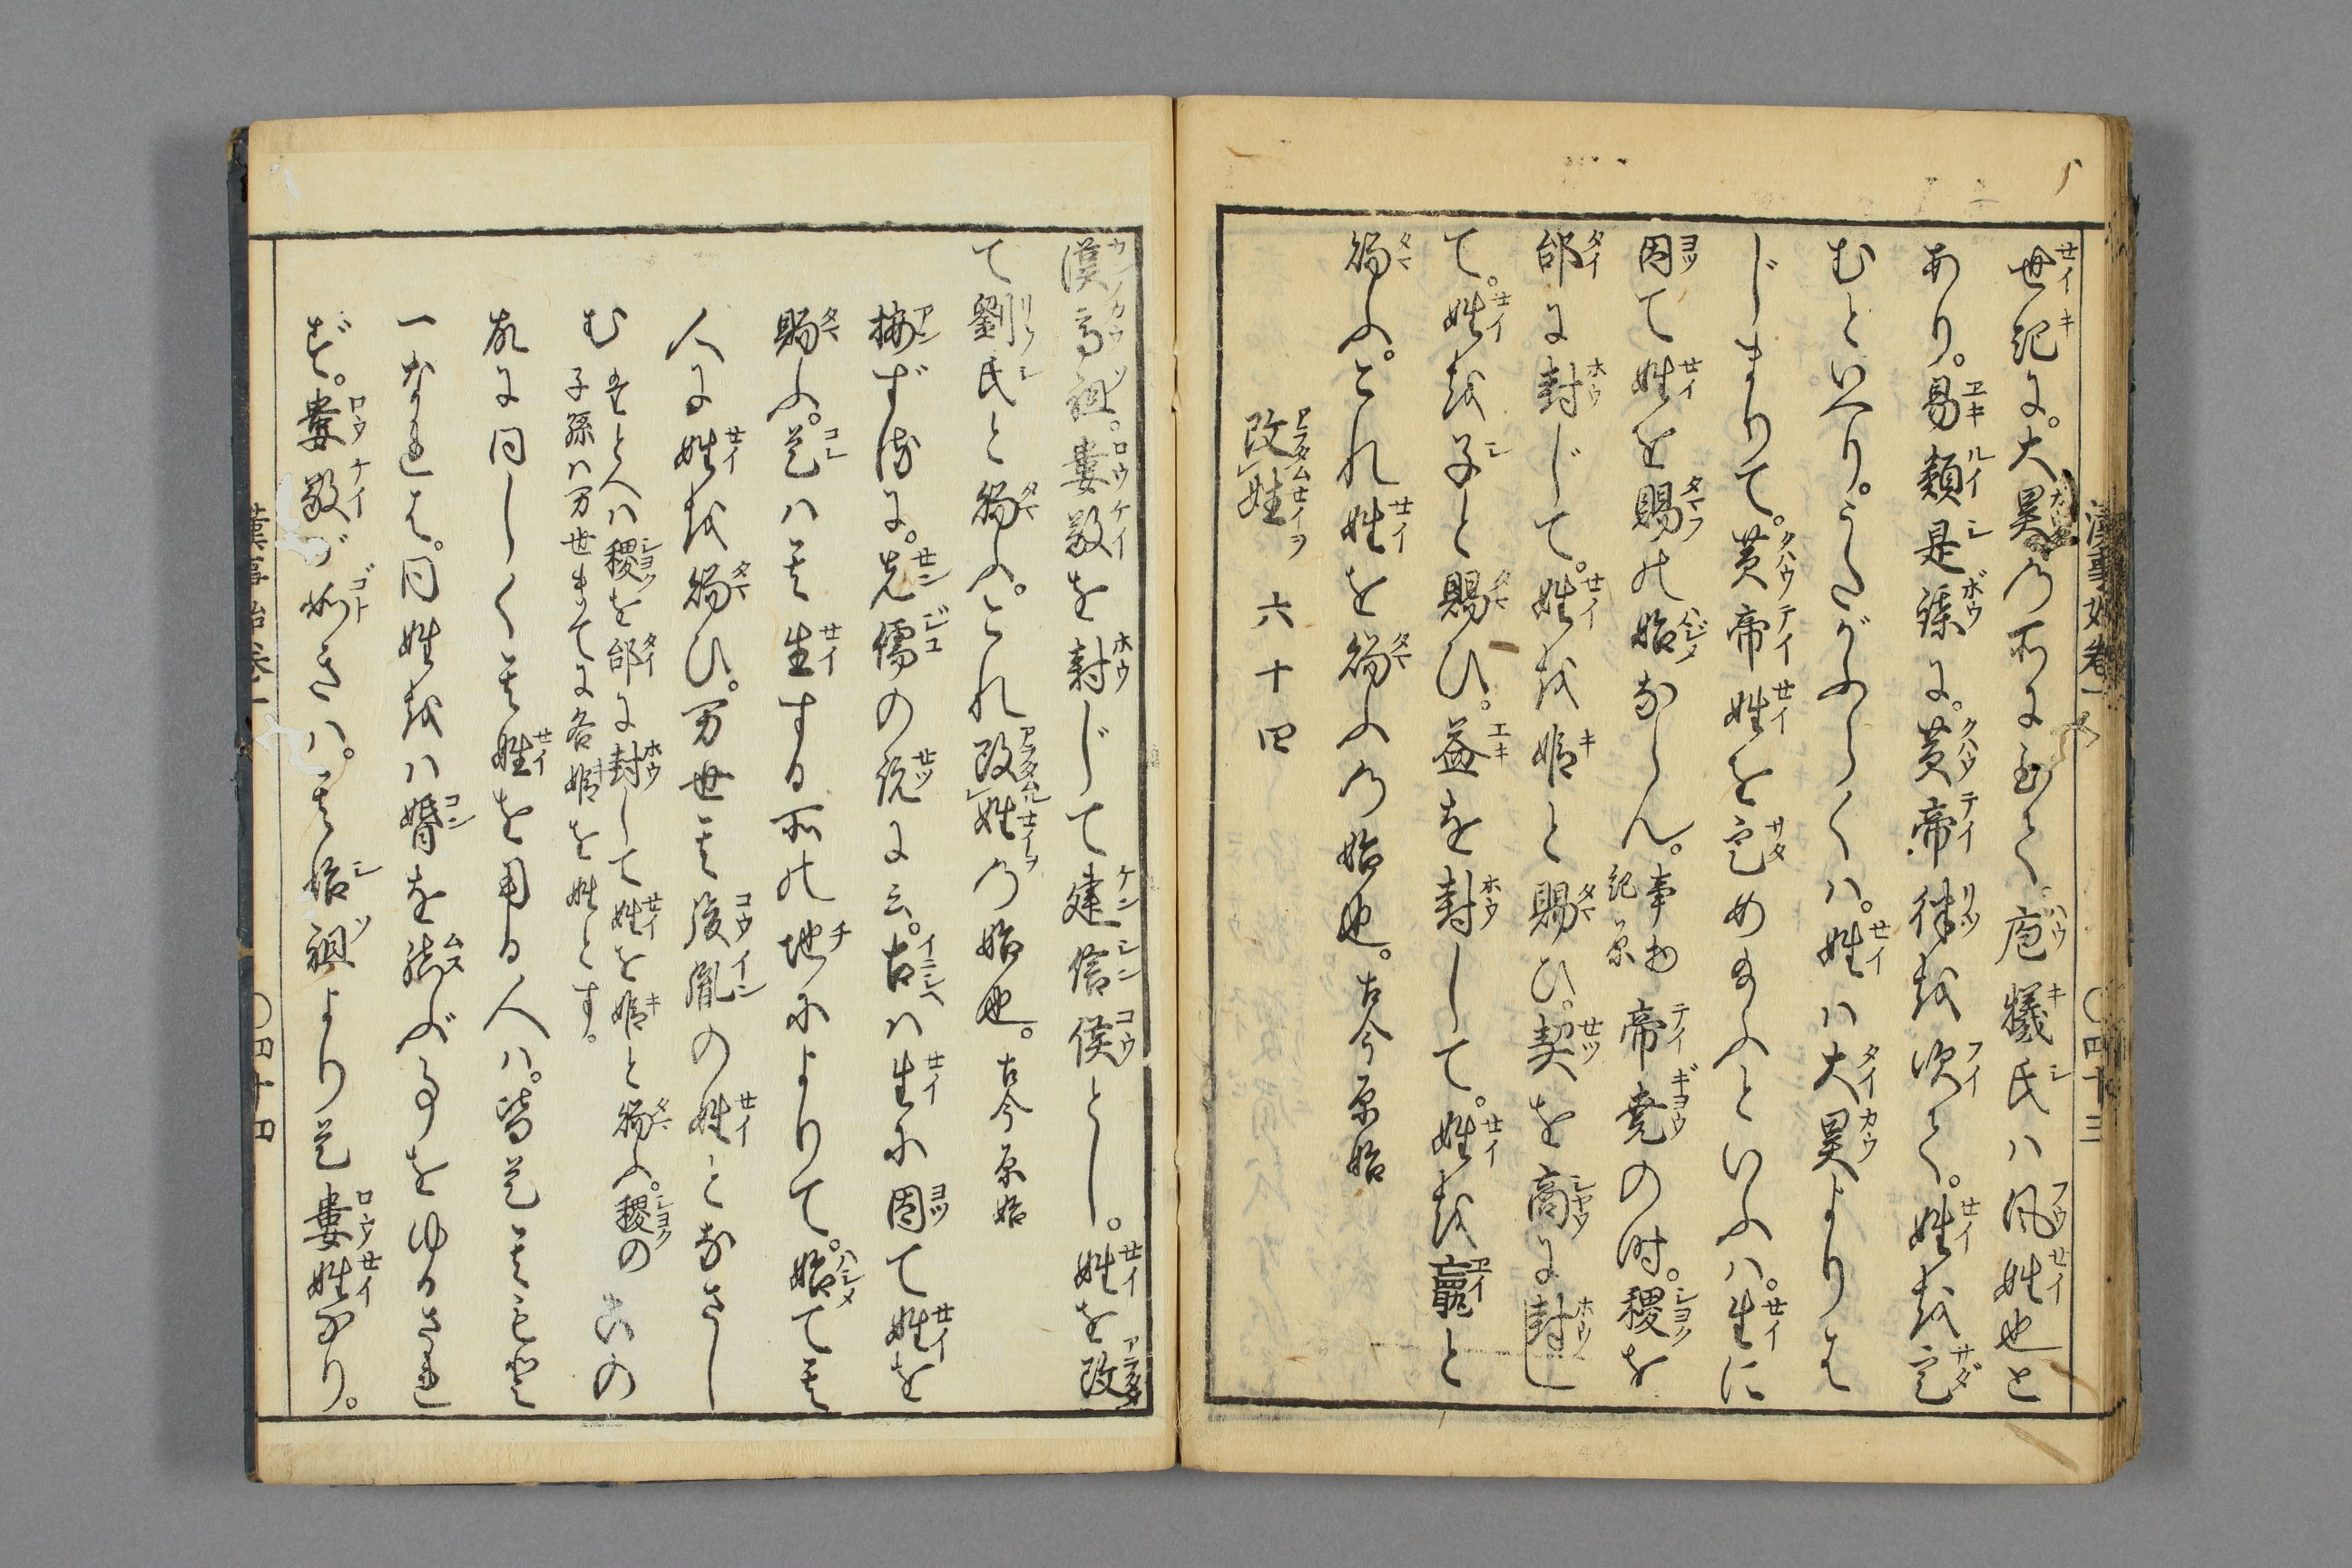 世記に。大昊の所に至て。庖犧氏ハ風姓也と
あり。易類是謀に。黄帝律を吹て。姓を定
むといへり。うたがふらくハ。姓ハ大昊よりは
じまりて。黄帝姓を定め玉ふといふハ。生に
因て姓を賜の始ならん。事物紀原 帝堯の時。稷を
邰に封じて。姓を姫と賜ひ。契を商に封し
て。姓を子と賜ひ。益を封して。姓を嬴と
賜ふ。これ姓を賜ふの始也。古今原始
改姓 六十四
漢高祖。婁敬を封じて建信侯とし。姓を改
て劉氏と賜ふ。これ改姓の始也。古今原始
按ずるに。先儒の説に云。古ハ生に因て姓を
賜ふ。是ハ其生する所の地によりて。始て其
人に姓を賜ひ。万世其後胤の姓となさし
む たとへハ稷を邰に封して姓を姫と賜ふ。稷の
子孫ハ万世まてに各姫を姓とす。 この
故に同しく其姓を用る人ハ。皆是其先祖
一なれは。同姓をハ婚を結ぶ事をゆるされ
ず。婁敬が如きハ。其始祖より是婁姓なり。
漢事始巻一 〇四十三
漢事始巻一 〇四十四